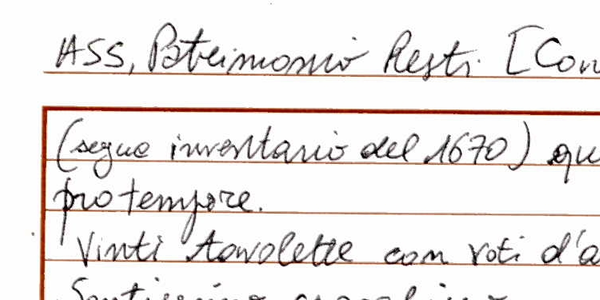 ASS, Patrimonio Resti. [Con
(segue inventario del 1670) qu
pro tempore.
Vinti tavolette con voti d'a
Santissimo